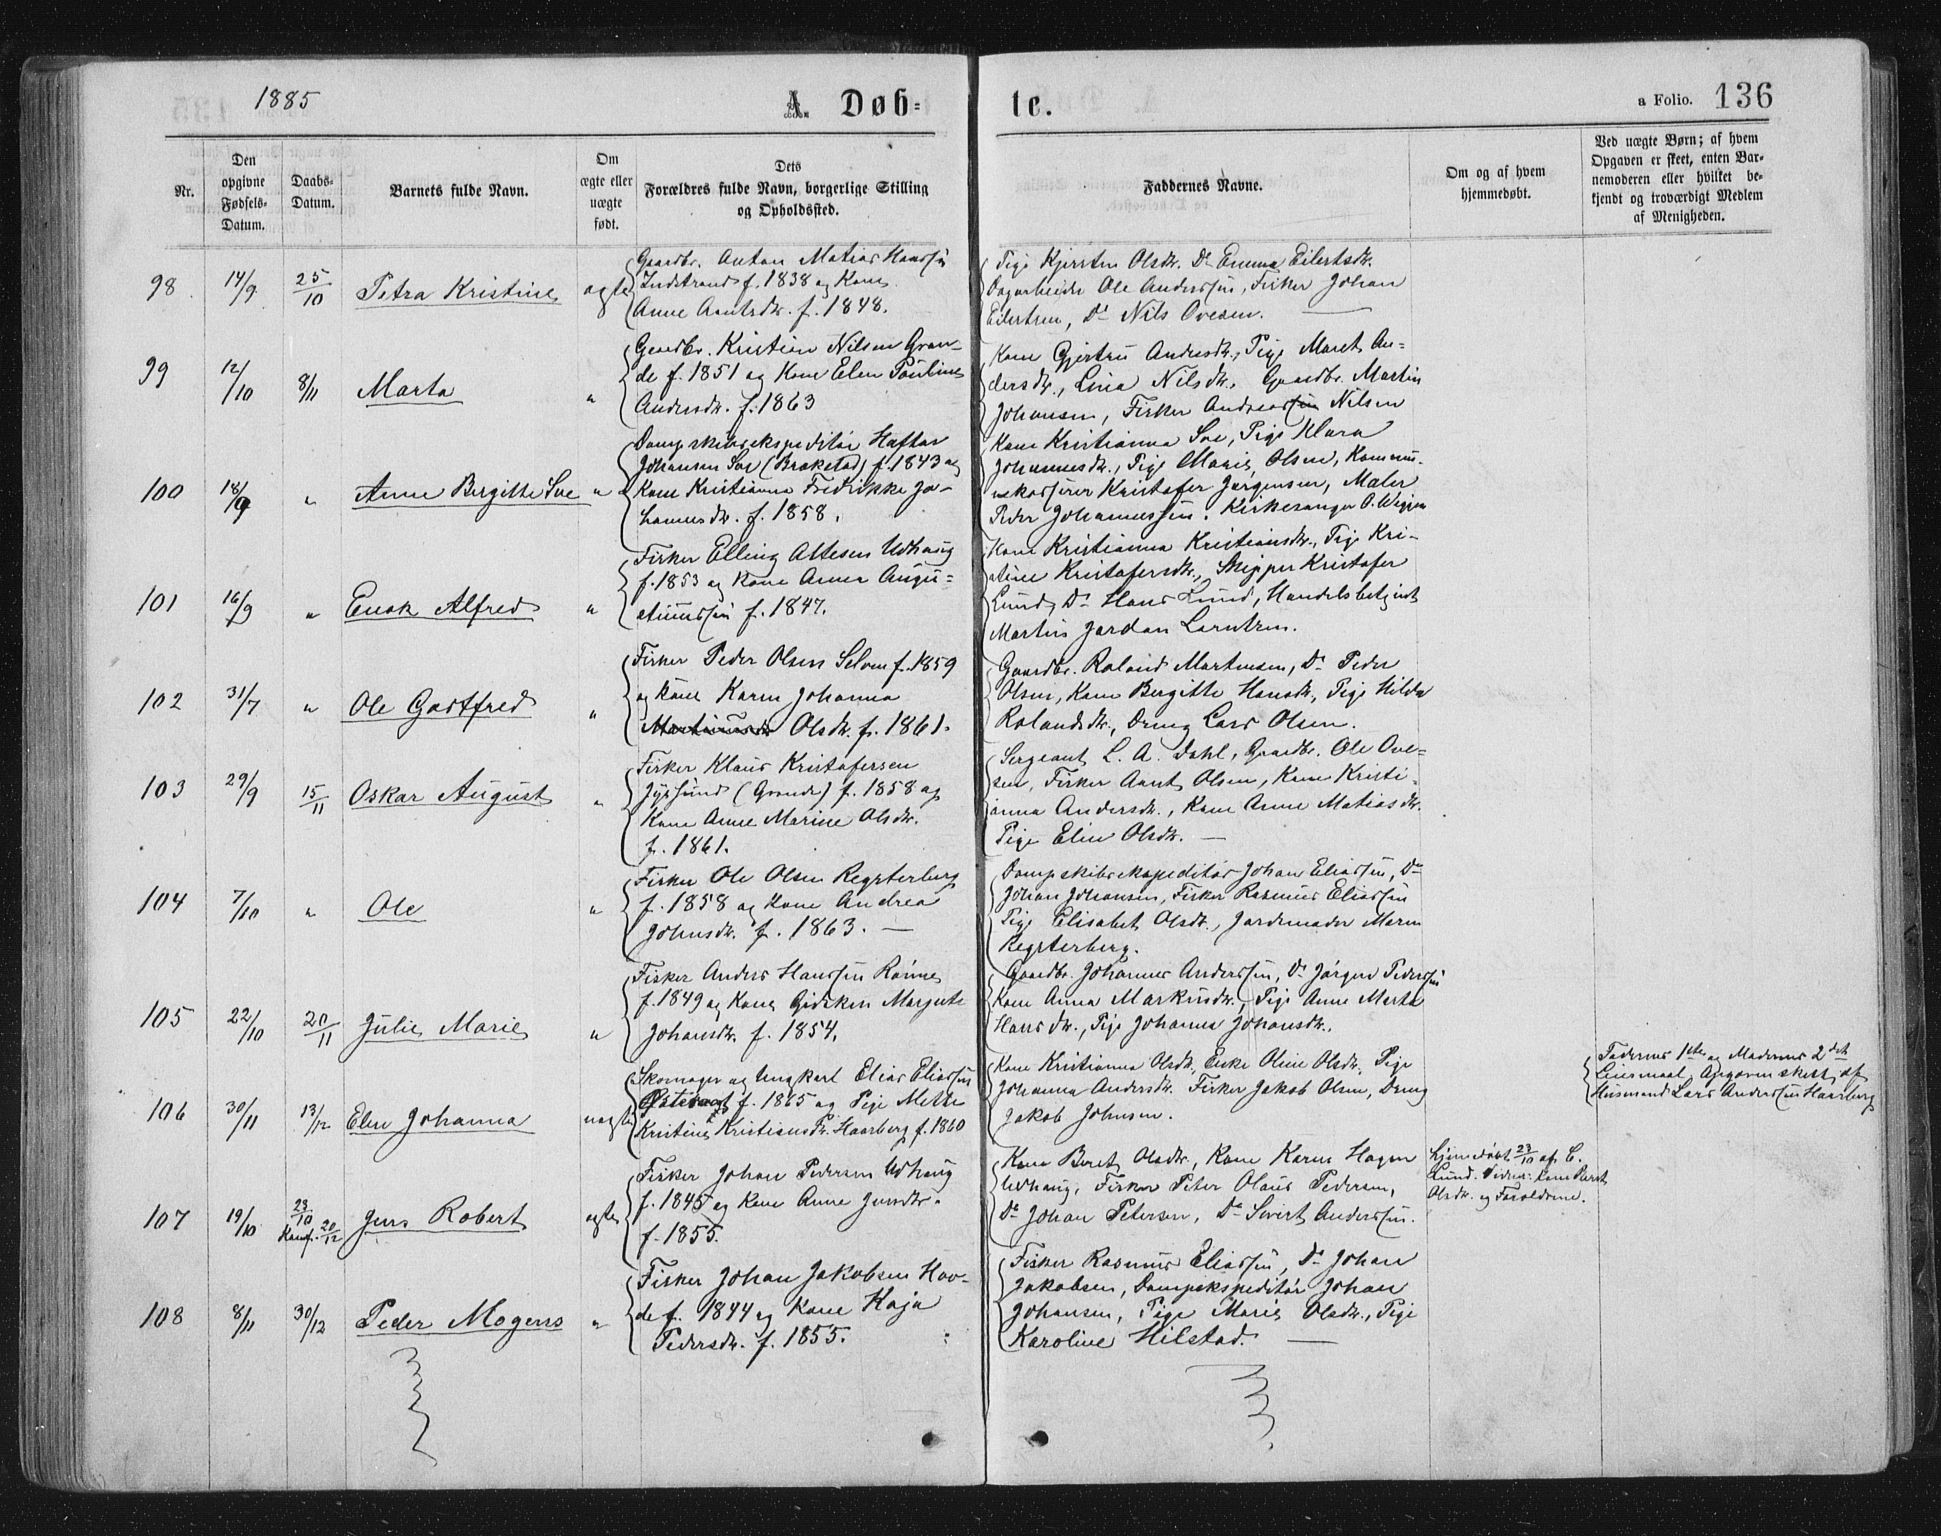 1885
A. Døb-
te.
a Folio. 136
Nr.
Den
opgivne
Fødsels-
Datum.
Daabs-
Datum.
Barnets fulde Navn.
Om
ægte eller
uægte
født.
Dets
Forældres fulde Navn, borgerlige Stilling
og Opholdssted.
Faddernes Navne.
Om og af hvem
hjemmedøbt.
Ved uægte Børn; af hvem
Opgaven er skeet, enten Bar-
nemoderen eller hvilket be-
kjendt og troværdigt Medlem
af Menigheden.
98 14/9 25/10 Petra Kristine ægte
Gaardbr. Anton Matias Hanssen
Indstrand f. 1838 og Kone
Anne Aantsdtr. f. 1848.
Pige Kjersten Olsdtr. Do Emma Eilertsdtr.
Dagarbeider Ole Anderssen, Fisker Johan
Eilertsen, Do Nils Ovesen.
99 12/10 8/11 Marta "
Gaardbr. Kristian Nilsen Gran-
de f. 1851 og Kone Elen Pauline
Andersdtr. f. 1863
Kone Gjertru Andersdtr., Pige Maret An-
dersdtr., Lina Nilsdtr. Gaardbr. Martin
Johansen, Fisker Andreas Nilsen
100 18/9 " Anne Bergitte Soe "
Dampskibsekspeditør Haftor
Johansen Soe (Brakstad) f. 1843 og
Kone Kristianna Fredrikke Jo-
hannesdtr. f. 1858.
Kone Kristianna Soe, Pige Klara
Johannesdtr., Pige Marie Olsen, Kommu-
nekasserer Kristofer Jørgensen, Maler
Peder Johannessen. Kirkesanger O. Wiggen
101 16/9 " Enok Alfred "
Fisker Elling Altesen Udhaug
f. 1853 og Kone Anne Augu-
stinussen f. 1847.
Kone Kristianna Kristiansdtr., Pige Kri-
stine Kristofersdtr., Skipper Kristofer
Lund, Do Hans Lund, Handelsbetjent
Martin Jordan Lorntsen.
102 31/7 " Ole Gastfred "
Fisker Peder Olsen Selven f. 1859
og Kone Karen Johanna
Martinusdtr Olsdtr. f. 1861.
Gaardbr. Roland Martensen, Do Peder
Olsen, Kone Bergitte Hansdtr., Pige Hilda
Rolandsdtr., Dreng Lars Olsen.
103 29/9 15/11 Oskar August "
Fisker Klaus Kristofersen
(Grande) f. 1858 og
Kone Anne Marine Olsdtr.
f. 1861.
Sergeant L. A. Dahl, Gaardbr. Ole Ove-
sen, Fisker Aant Olsen, Kone Kristi-
anna Andersdtr., Kone Anne Matiasdtr.
Pige Elen Olsdtr.
104 7/10 " Ole "
Fisker Ole Olsen Regsterberg
f. 1858 og Kone Andrea
Johnsdtr. f. 1863.
Dampskibsekspeditør Johan Eliassen, Do
Johan Johansen, Fisker Rasmus Eliassen
Pige Elisabet Olsdtr., Jordemoder Maren
Regsterberg.
105 22/10 20/11 Julie Marie "
Fisker Anders Hanssen Rønne
f. 1849 og Kone Gidsken Margrete
Johansdtr. f. 1854.
Gaardbr. Johannes Anderssen, Do Jørgen Pederssen
Kone Anna Markusdtr., Pige Anne Marta
Hansdtr., Pige Johanna Johansdtr.
106 30/11 13/12 Elen Johanna uægte
Skomager og Ungkarl Elias Eliassen
f. 1865 og Pige Mette
Kristine Kristiansdtr. Haarberg f. 1860
Kone Kristianna Olsdtr., Enke Oline Olsdtr., Pige
Johanna Andersdtr. Fisker Jakob Olsen, Dreng
Jakob Johnsen.
Faderens 1ste og Moderens 2det
Leiermaal. Opgaven skeet af
Husmand Lars Anderssen Haarberg
107 19/10 23/10 Konf. 20/12 Jens Robert ægte
Fisker Johan Pedersen Udhaug
f. 1845 og Kone Anne Jensdtr.
f. 1855.
Kone Beret Olsdtr., Kone Karen Hagen
Udhaug, Fisker Peter Olaus Pedersen,
Do Johan Petersen, Do Sivert Anderssen.
hjemmedøbt 23/10 af C.
Lund. Vidner: Kone Beret
Olsdtr. og Forældrene.
108 8/11 30/12 Peder Mogens "
Fisker Johan Jakobsen Hov-
de f. 1844 og Kone Kaja
Pedersdtr. f. 1855.
Fisker Rasmus Eliassen, Do Johan
Jakobsen, Dampskspeditør Johan
Johansen, Pige Marie Olsdtr., Pige
Karoline Hilstad.